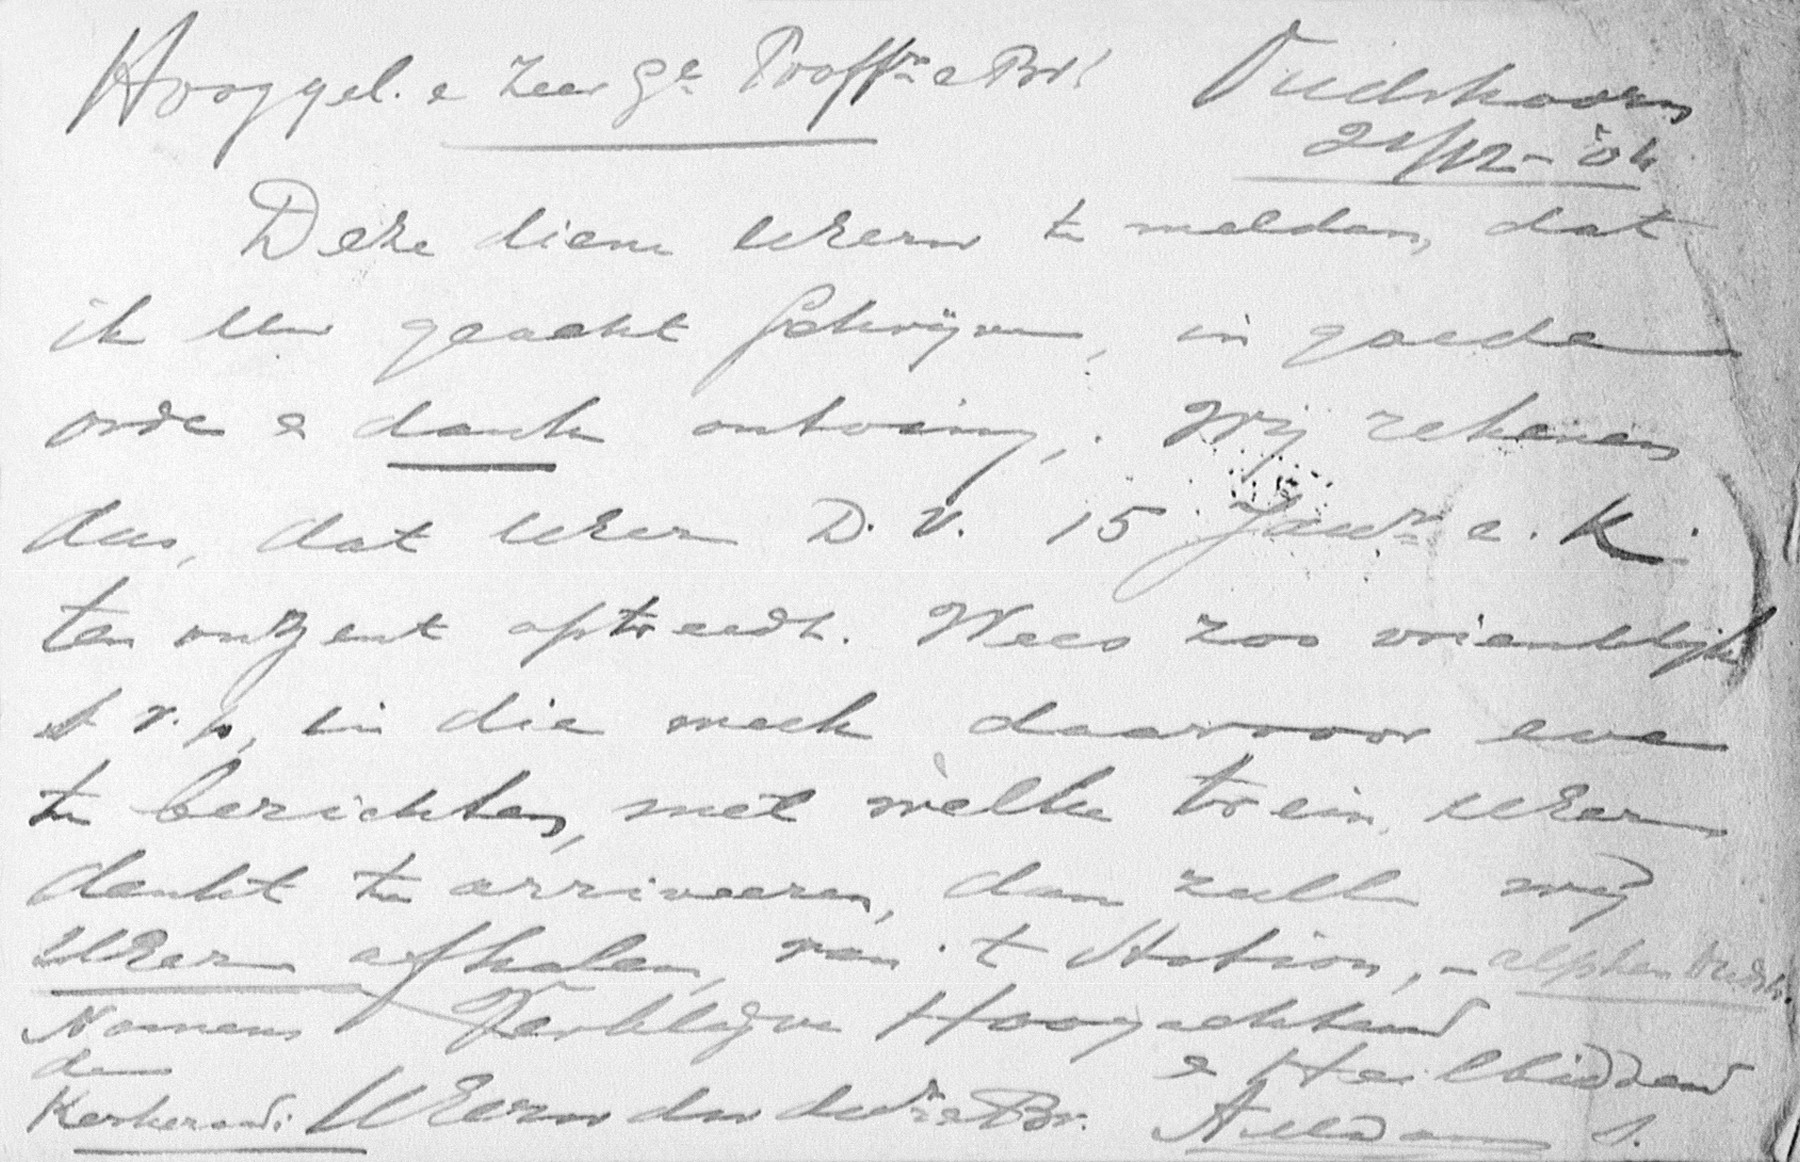 Hooggel. e Zeer Ge Proffr e Br! Oudshoorn
21/12 - '04
Deze diene UEerw te melden, dat
ik Uw geacht Schrijven, in goede
orde e dank ontving. Wij rekenen
dus, dat UEer D. V. 15 Janr a. K.
ten onzent optreedt. Wees zoo vriendelijk
s. v. p, in die week daarvoor even
te berichten, met welke trein, UEerw
denkt te arriveeren, dan zulln wij
UEerw afhalen, van 't Station, - alphen Oudsh.
Namens Verblijve Hoogachtend
den e Heilbiddend
Kerkeraad: UEerw dw dr e Br.